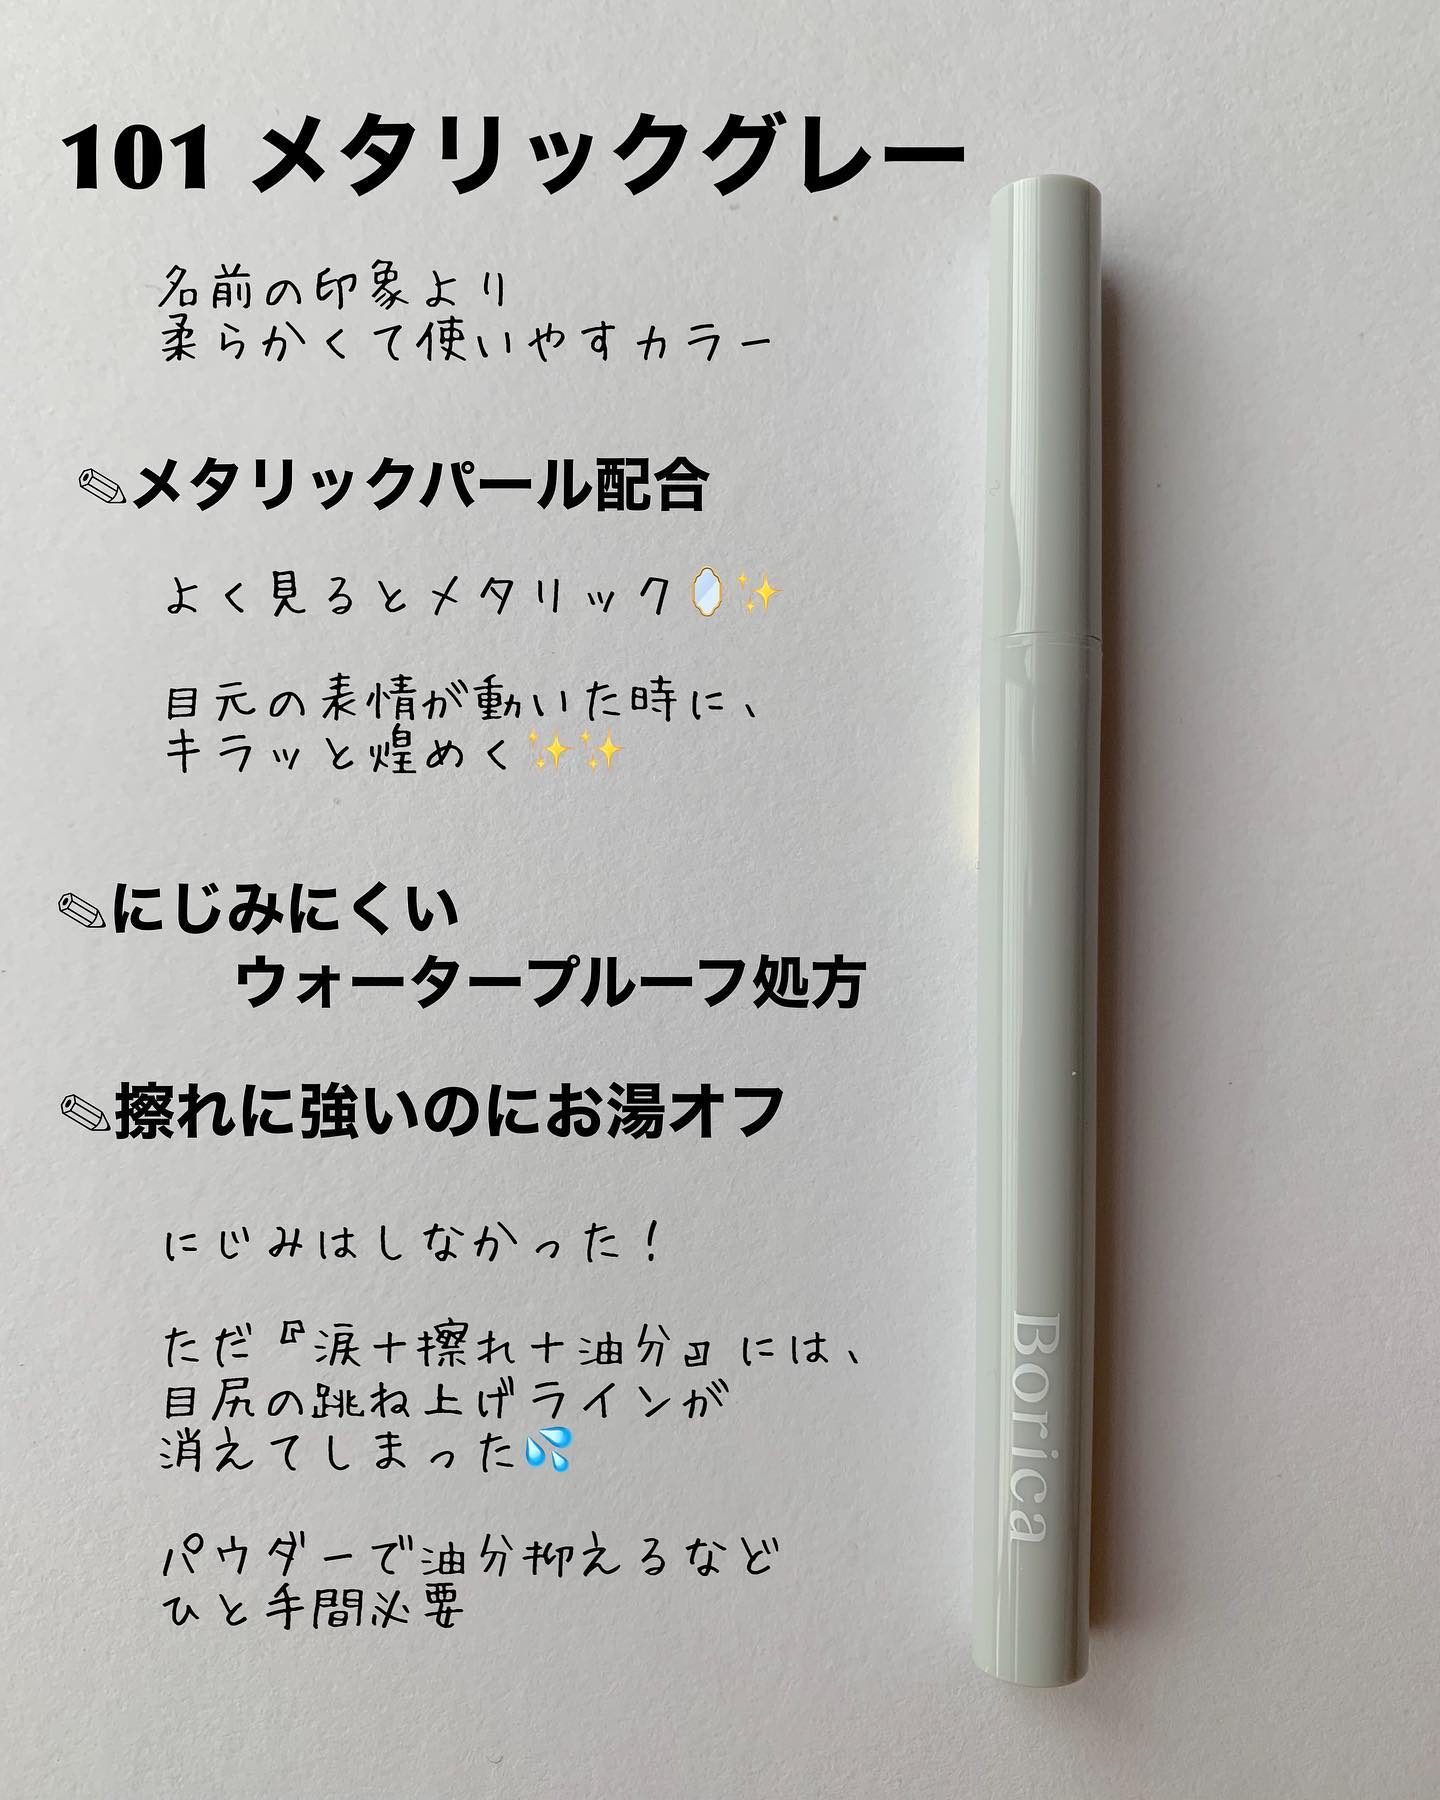 101 メタリックグレー
名前の印象より
柔らかくて使いやすカラー
✏メタリックパール配合
よく見るとメタリック🪞✨
目元の表情が動いた時に、
キラッと煌めく✨✨
✏にじみにくい
ウォータープルーフ処方
✏擦れに強いのにお湯オフ
にじみはしなかった！
ただ『涙＋擦れ＋油分』には、
目尻の跳ね上げラインが
消えてしまった💦
パウダーで油分抑えるなど
ひと手間必要
Borica